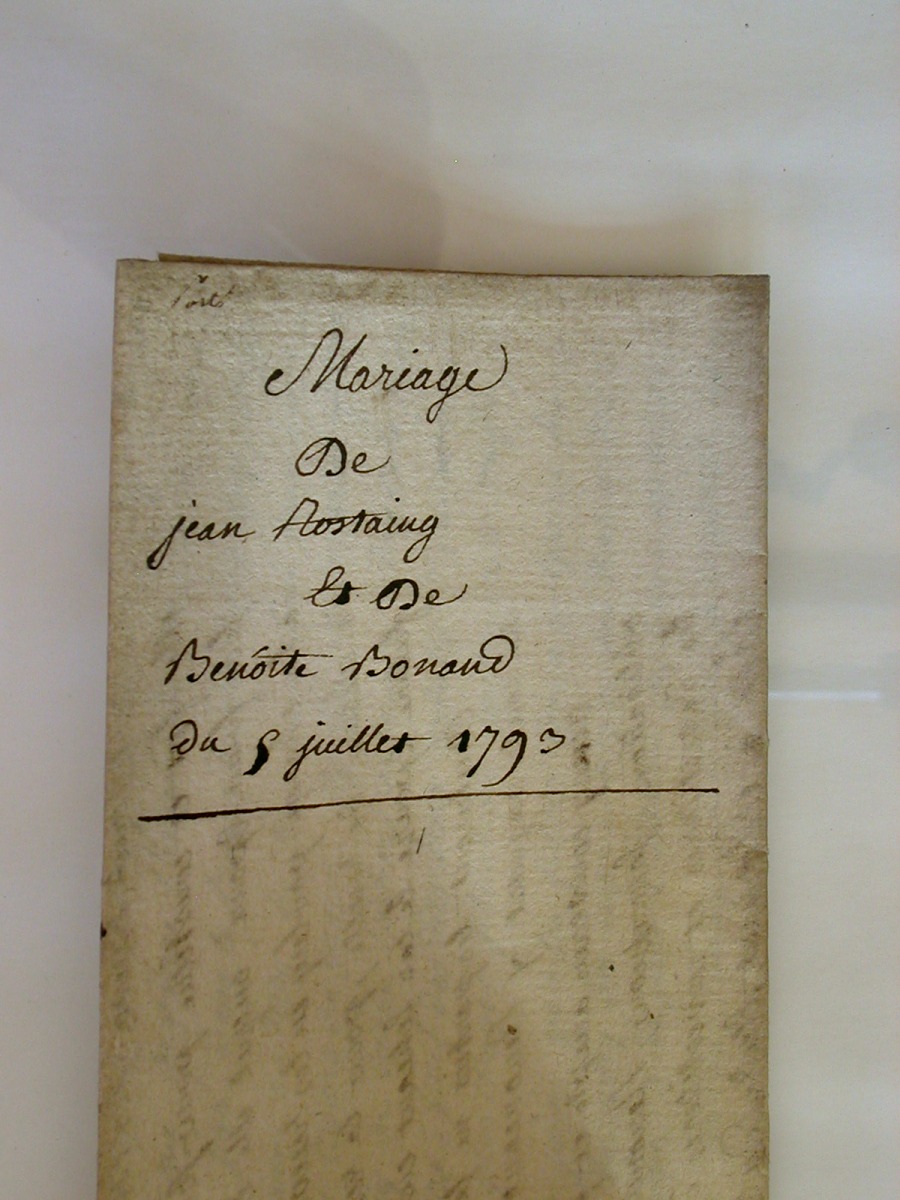 Mariage
De
jean Rostaing
Et De
Benôite Bonand
du 5 juillet 1793